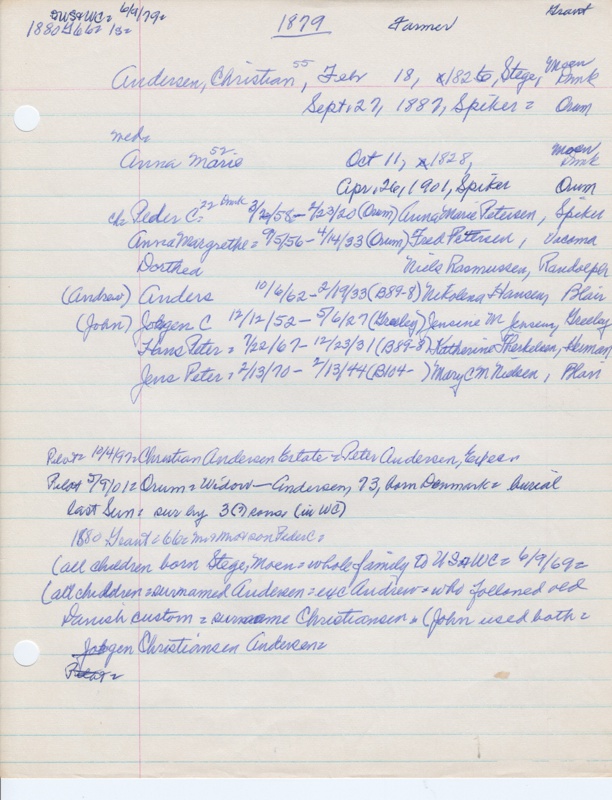 DWS&WC= 6/9/79=
1880 G66= 13=
1879 Farmer Grant
Andersen, Christian 55, Feb 18, x1826, Stege, Moen Dmk
Sept. 27, 1887, Spiker = Orum
med.
Anna Marie 52 Oct 11, x1828, Moen Dmk
Apr. 26, 1901, Spiker Orum
ch= Peder C. = 22 Dmk 3/ /58 - 2/23/20 (Orum) Anna Marie Petersen, Spiker
Anna Margrethe = 9/5/56 - 4/14/33 (Orum) Fred Petersen, Vacoma
Dorthea Niels Rasmussen, Randolph
(Andrew) Anders 10/6/62 - 2/19/33 (B89-8) Nikolena Hansen, Blair
(John) Jorgen C 12/12/52 - 5/6/27 (Greeley) Jensine M Jensen, Greeley
Hans Peter = 7/22/67 - 12/23/31 (B89-8) Katherine Therkelsen, Herman
Jens Peter = 2/13/70 - 2/13/44 (B104- ) Mary C M Nielsen, Blair
Pilot = 10/4/97 = Christian Andersen Estate = Peter Andersen,
Pilot 5/9/01 = Orum = Widow - Andersen, 73, born Denmark = burial
last Sun = sur by 3 (?) sons (in WC)
1880 Grant = 66= son Peder C =
(all children born Stege, Moen = whole family to US&WC = 6/9/69 =
(all children = surnamed Andersen = exc Andrew = who followed old
Danish custom = surname Christiansen = (John used both =
Jorgen Christiansen Andersen =
Pilot =